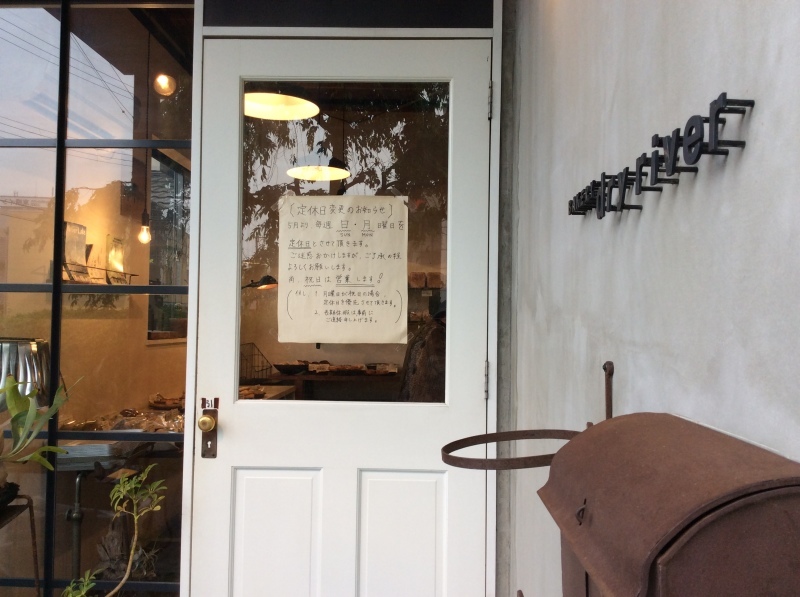 (定休日変更のお知らせ)
5月より 毎週 日・月 曜日を
SUN MON
定休日とさせて頂きます。
ご迷惑おかけしますが、ご了承の程
よろしくお願いします。
尚、祝日は営業します!
1. 月曜日が祝日の場合、
定休日を優先させて頂きます。
2. 長期休暇は事前に
ご連絡申し上げます。
river